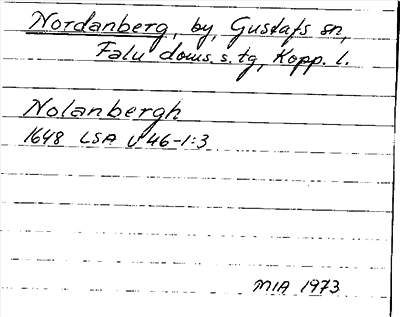 Nordanberg, by, Gustafs sn,
Falu doms. s. tg, Kopp. l.
Nolanbergh
1648 LSA U46-1:3
MIA 1973